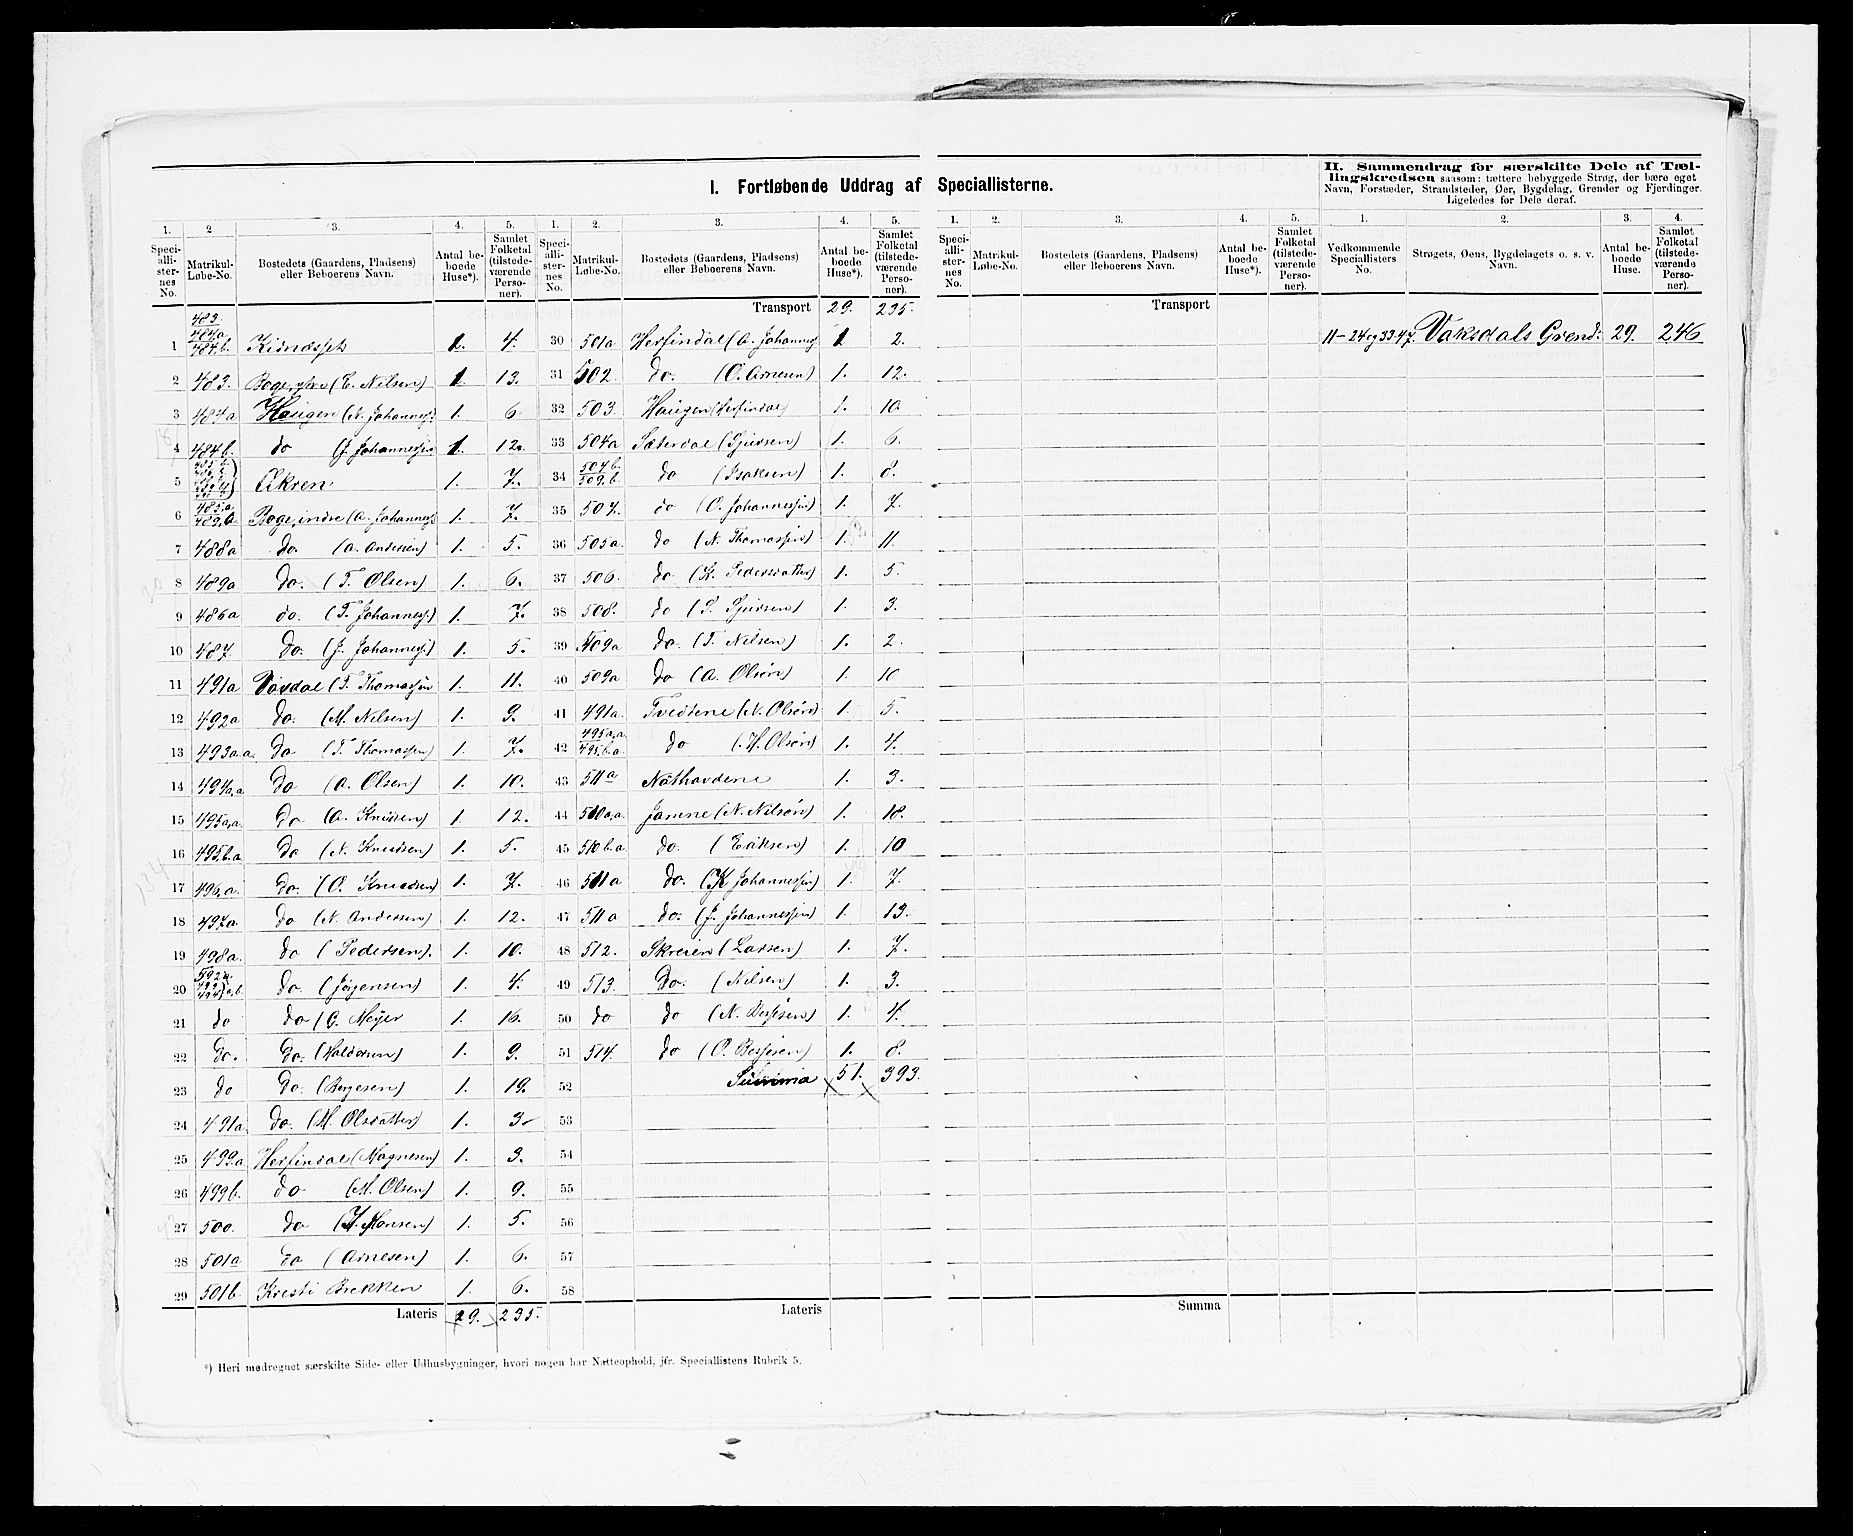 I. Fortløbende Uddrag af Speciallisterne.
II. Sammendrag for særskilte Dele af Tællingskredsen saasom: tættere bebyggede Strøg, der bære eget
Navn, Forstæder, Strandsteder, Øer, Bygdelag, Grender og Fjerdinger.
Ligeledes for Dele deraf.
1. 2 3. 4. 5. 1. 2. 3. 4. 5. 1. 2. 3. 4. 5. 1. 2. 3. 4.
Speciallisternes No. Matrikul-Løbe-No. Bostedets (Gaardens, Pladsens) eller Beboerens Navn. Antal beboede Huse*). Samlet Folketal (tilstedeværende Personer).
Speciallisternes No. Matrikul-Løbe-No. Bostedets (Gaardens, Pladsens) eller Beboerens Navn. Antal beboede Huse*). Samlet Folketal (tilstedeværende Personer).
Speciallisternes No. Matrikul-Løbe-No. Bostedets (Gaardens, Pladsens) eller Beboerens Navn. Antal beboede Huse*). Samlet Folketal (tilstedeværende Personer).
Vedkommende Speciallisters No. Strøgets, Øens, Bygdelagets o. s. v. Navn. Antal beboede Huse. Samlet Folketal (tilstedeværende Personer).
1 483. 484a 484b. 1. 4.
2 483. Boge, (E. Nilsen) 1 13.
3 484a Haugen (N. Johannes) 1. 6
4 484b. do (J. Johannessen 1. 12.
5 Akren 1. 7.
6 485.a Boge, indre (A. Johannes) 1. 7.
7 488a do. (A. Andersen) 1. 5.
8 489a do. (T. Olsen) 1. 6.
9 486a do. (T. Johannes) 1. 7.
10 487. do. (J. Johannes) 1. 5.
11 491a (T. Thomassen 1. 11.
12 492a do. (M. Nilsen) 1. 9.
13 493a.a. do (T. Thomassen) 1. 7.
14 494a.a do (A. Olsen) 1. 10.
15 495a.a. do (A. Knudsen) 1. 12.
16 495.b.a do (N. Knudsen) 1. 5.
17 496.a. do. (O. Knudsen) 1. 7.
18 497a. do (N. Andersen) 1. 12.
19 498a. do (Pedersen). 1. 10.
20 do. (Jørgensen) 1. 4.
21 do do (C. Meyer 1. 16.
22 do. do. (Haldorsen) 1. 9.
23 do do. (Bergesen) 1. 19.
24 491a. do. (M. Olsdatter) 1. 3
25 499.a Herfindal (Magnesen) 1. 3.
26 499b. do (M. Olsen) 1. 9.
27 500. do (Hansen) 1. 5.
28 501a do (Arnesen) 1. 6.
29 501b. Kresti Brekken 1. 6.
Lateris 29. 235.
Transport 29. 235.
30 501a Herfindal (A. Johannes) 1 2.
31 502. do. (O. Arnesen) 1. 12.
32 503. Haugen (Herfindal) 1. 10
33 504a Sæterdal (Sjursen) 1. 6.
34 504b. 509.b. do (Isaksen) 1. 8.
35 507. do (O. Johannessen) 1. 7.
36 505a. do (N. Thomassen) 1. 11.
37 506. do (K. Pedersdatter) 1. 5.
38 508. do (S. Sjursen) 1. 3.
39 509a do. (T. Nilsen) 1. 2.
40 509a do (A. Olsøn) 1. 10
41 491a. Tvedtene (N. Olsøn) 1. 5.
42 495a.a. 495.b.a. do (H. Olsøn) 1. 4.
43 511a 1. 3.
44 510a.a. Jamne (N. Nilsøn) 1. 18.
45 510b.a. do. (Eriksen) 1. 10
46 511a do. (K Johannessen) 1. 7.
47 511a do. (J. Johannessen) 1. 13.
48 512. Skreien (Larsen) 1. 7.
49 513. do. (Nilsen) 1. 3.
50 do do (N. ) 1. 4.
51 514. do (O. ) 1. 8.
52 Summa 51. 393.
53
54
55
56
57
58
Lateris
Transport
Summa
11–24 og 33–47. Vaksdals Grend: 29. 246
*) Heri medregnet særskilte Side- eller Udhusbygninger, hvori nogen har Natteophold, jfr. Speciallistens Rubrik 5.